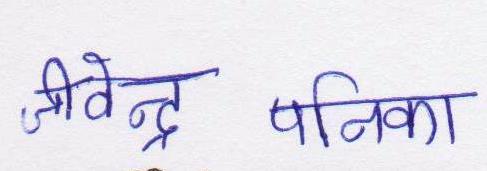 जीवेन्द्र पनिका